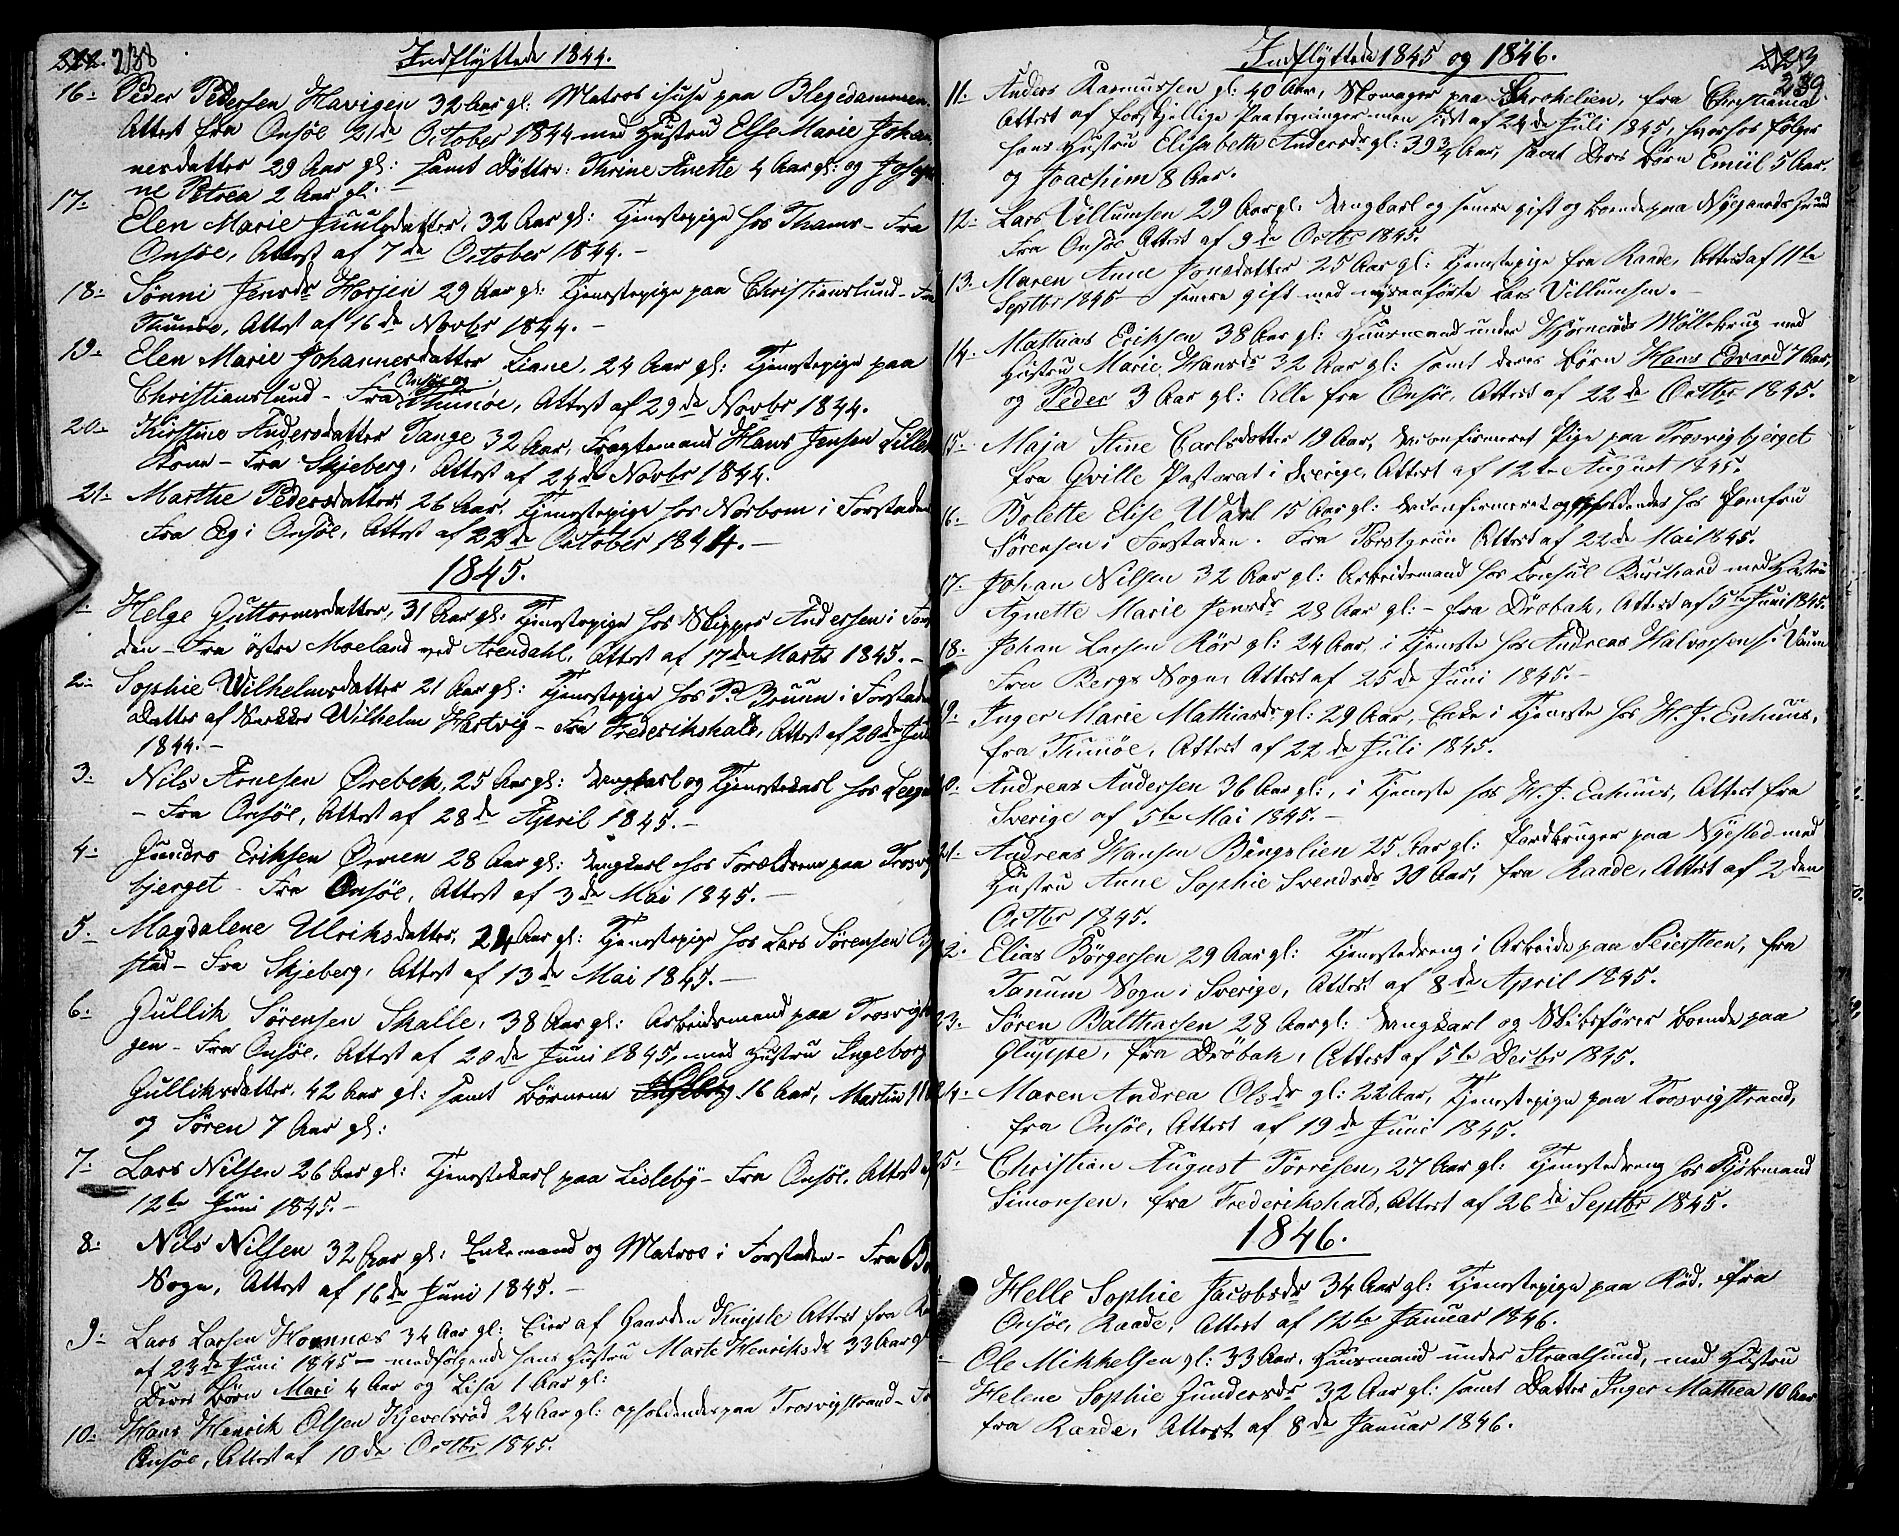 238
Indflyttede 1844.
16. Peder Pedersen Havigen 32 Aar gl: Matros i huse paa Blegedammen.
Attest fra Onsøe 21de October 1844 med Hustru Else Marie Johan-
nesdatter 29 Aar gl: samt Døttre: Thrine Anette 4 Aar gl: og Josephi-
ne Petrea 2 Aar gl.
17. Elen Marie Juulsdatter, 32 Aar gl: Tjenestepige hos Thams - Fra
Onsøe, Attest af 7de October 1844. -
18. Sønni Jensdr Horjen 29 Aar gl: Tjenestepige paa Christianslund - Fra
Thunøe, Attest af 16de Novbr 1844. -
19. Elen Marie Johannesdatter Liane, 24 Aar gl: Tjenestepige paa
Christianslund - Fra Onsøe og Thunøe, Attest af 29de Novbr 1844.
20. Kirstine Andersdatter Tange 32 Aar, Fragtemand Hans Jensen Lilles
Kone - Fra Skjeberg, Attest af 24de Novbr 1844.
21. Marthe Pedersdatter, 26 Aar, Tjenestepige hos Norbom i Forstaden
Fra Eg i Onsøe, Attest af 22de October 1844. -
1845.
Helge Guttormsdatter, 31 Aar gl: Tjenestepige hos Skipper Andersen i Forsta-
den - Fra østre Moeland ved Arendahl, Attest af 17de Marts 1845. -
2. Sophie Wilhelmsdatter 21 Aar gl: Tjenestepige hos P. Bruun i Forstaden
Datter af Wilhelm Hartvig - Fra Frederikshald, Attest af 20de
1844. -
3. Nils Arnesen Ørebek, 25 Aar gl: Ungkarl og Tjenestekarl hos
- Fra Onsøe, Attest af 28de April 1845. -
4. Gunders Eriksen Ørmen 28 Aar gl: Ungkarl hos Forældrene paa Trosvig-
bjerget - Fra Onsøe, Attest af 3de Mai 1845. -
5. Magdalene Ulriksdatter, 24 Aar gl: Tjenestepige hos Lars Sørensen
stad - Fra Skjeberg, Attest af 13de Mai 1845. -
6. Gullik Sørensen Skalle, 38 Aar gl: Arbeidsmand paa Trosvig
gen - Fra Onsøe, Attest af 20de Juni 1845, med Hustru Ingeborg
Gulliksdatter, 42 Aar gl: samt Børnene 16 Aar, Martin
og Søren 7 Aar gl:
7. Lars Nilsen 26 Aar gl: Tjenestekarl paa Lisleby - Fra Onsøe. Attest af
12te Juni 1845. -
8. Nils Nilsen 32 Aar gl: Enkemand og Matros i Forstaden - Fra
Sogn, Attest af 16de Juni 1845. -
9. Lars Larsen Hornnæs 34 Aar gl: Eier af Gaarden Knipsle Attest fra
af 23de Juni 1845 - medfølgende hans Hustru Marte Henriksdr 33 Aar gl
Deres Børn Mari 4 Aar og Lisa 1 Aar gl:
10. Hans Henrik Olsen Kjevelsrød 24 Aar gl: opholdende paa Trosvigstrand - Fra
Onsøe, Attest af 10de Octbr 1845.
Indflyttede 1845 og 1846.
239
11. Anders Rasmussen gl: 40 Aar, Skomager paa Krokelien, fra Christiania
Attest af forskjellige Paategninger men sidst af 24de Juli 1845, hvorhos følger
hans Hustru Elisabeth Andersdr gl: 39¾ Aar, samt Deres Børn Emiil 5 Aar.
og Joachim 8 Aar.
12. Lars Villumsen 29 Aar gl: Ungkarl og senere gift og boende paa Nygaards Grund
Fra Onsøe Attest af 9de Octbr 1845.
13. Maren Anne Jonsdatter 25 Aar gl: Tjenestepige fra Raade, Attest af 11te
Septbr 1845 - senere gift med nysanførte Lars Villumsen. -
14. Mathias Eriksen 38 Aar gl: Huusmand under Kjørnerøds Møllebrug med
Hustru Marie Hansdr 32 Aar gl: samt deres Børn Hans Edvard 7 Aar,
og Peder 3 Aar gl: Alle fra Onsøe, Attest af 22de Octbr 1845.
15. Maja Stine Carlsdatter 19 Aar, uconfirmeret Pige paa Trosvigbjerget
fra Qville Pastorat i Sverige, Attest af 12te August 1845.
16. Bolette Elise Wærl 15 Aar gl: uconfirmeret opholdende hos Jomfru
Sørensen i Forstaden. Fra Porsgrun Attest af 22de Mai 1845.
17. Johan Nilsen 32 Aar gl: Arbeidsmand hos Consul Burchard med Hustru
Agnette Marie Jensdr 28 Aar gl: - fra Drøbak, Attest af 5te Juni 1845.
18. Johan Larsen Rør gl: 24 Aar, i Tjeneste hos Andreas Halvorsens i Veum
Fra Bergs Sogn, Attest af 25de Juni 1845. -
19. Inger Marie Mathiasdr gl: 29 Aar, Enke i Tjeneste hos H. J. Enhuus,
fra Thunøe, Attest af 22de Juli 1845.
20. Andreas Andersen 36 Aar gl:, i Tjeneste hos H. J. Enhuus, Attest fra
Sverige af 5te Mai 1845. -
21. Andreas Hansen Bingslien 25 Aar gl: Jordbruger paa Nyested med
Hustru Anne Sophie Svendsdr 30 Aar, fra Raade, Attest af 2den
Octbr 1845.
22. Elias Börgersen 29 Aar gl: Tjenestedreng i Arbeide paa Seiersteen, fra
Tanum Sogn i Sverige, Attest af 8de April 1845.
23. Søren Balthasen 28 Aar gl: Ungkarl og Skibsfører boende paa
Gluppe, fra Drøbak, Attest af 5te Decbr 1845.
24. Maren Andrea Olsdr gl: 22 Aar, Tjenestepige paa Trosvigstrand,
fra Onsøe, Attest af 19de Juni 1845.
25. Christian August Törresen, 27 Aar gl: Tjenestedreng hos Kjøbmand
Simonsen, fra Frederikshald, Attest af 26de Septbr 1845.
1846.
Helle Sophie Jacobsdr 34 Aar gl: Tjenestepige paa Röd. fra
Onsøe, Raade, Attest af 12te Januar 1846.
Ole Mikkelsen gl: 33 Aar, Huusmand under Straalsund, med Hustru
Helene Sophie Gundersdr 32 Aar gl: samt Datter Inger Mathea 10 Aar
fra Raade, Attest af 8de Januar 1846.